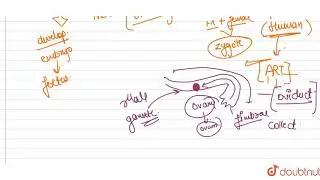 M + female
(Human)
develop.
embryo
zygote
foetus
[ART]
Male
gamete
ovary
ovum
fimbriae
oviduct
collect
doubtnut